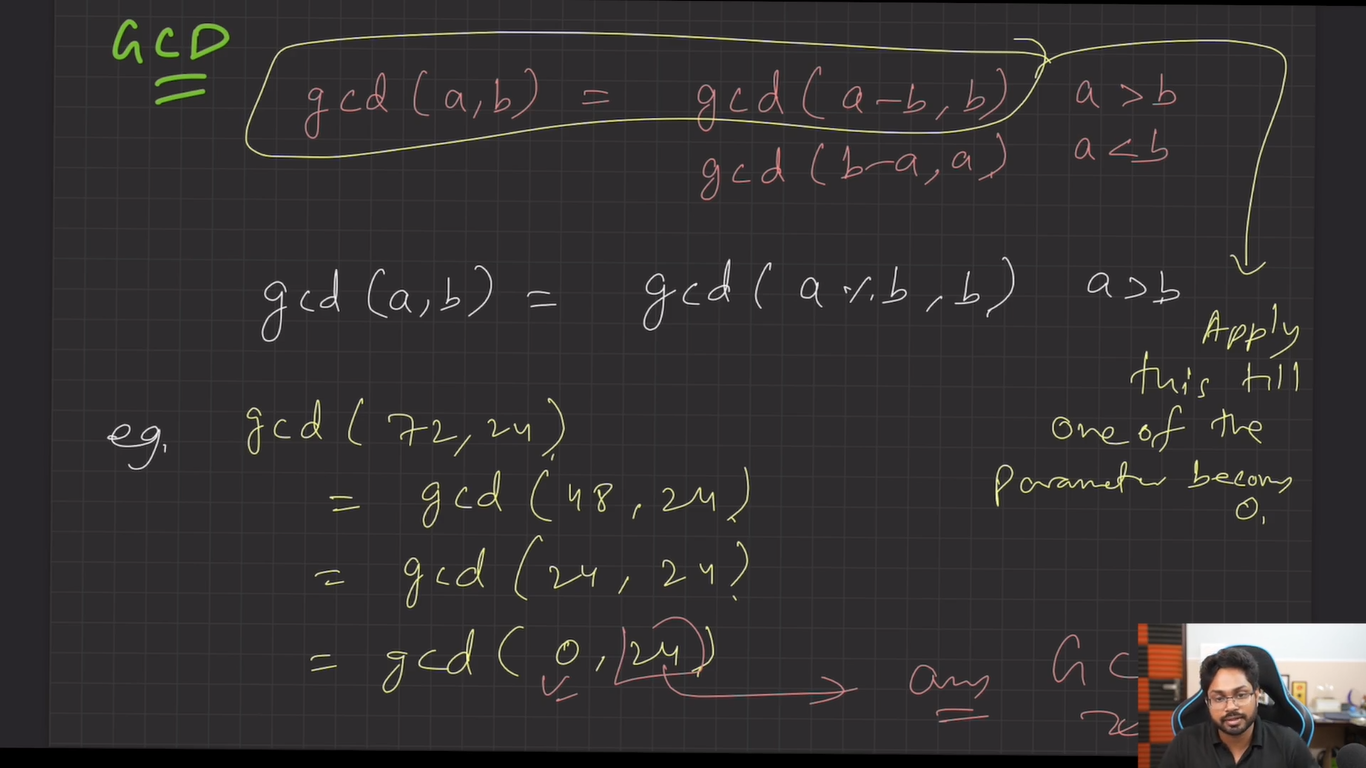 GCD
gcd (a,b) = gcd (a-b, b) a > b
gcd (b-a, a) a < b
gcd (a,b) = gcd ( a % b , b) a > b
Apply
this till
one of the
Parameter becomes
0.
eg. gcd ( 72, 24 )
= gcd ( 48 , 24 )
= gcd ( 24 , 24 )
= gcd ( 0 , 24 ) ans GC